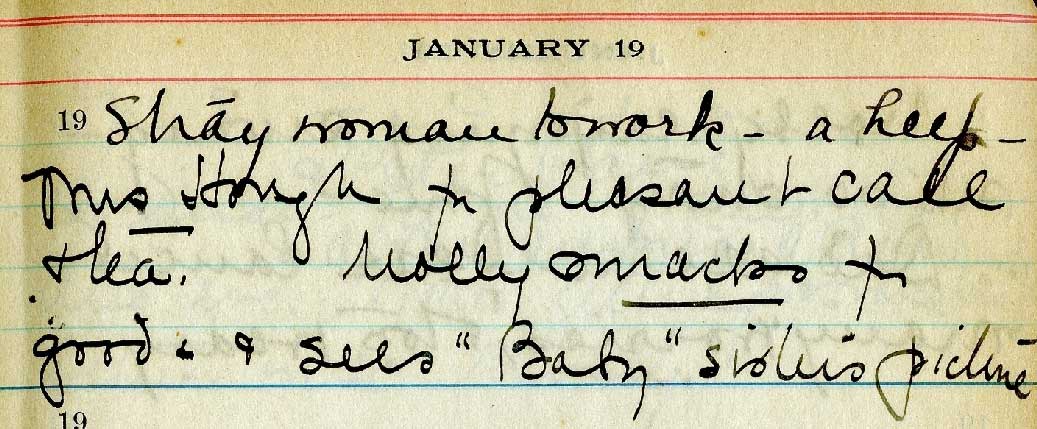 JANUARY 19
19 Shāy woman to work - a help -
Mrs Hough for pleasant call
& tea. Molly smacks for
good & sees "Baby" sister's picture
19